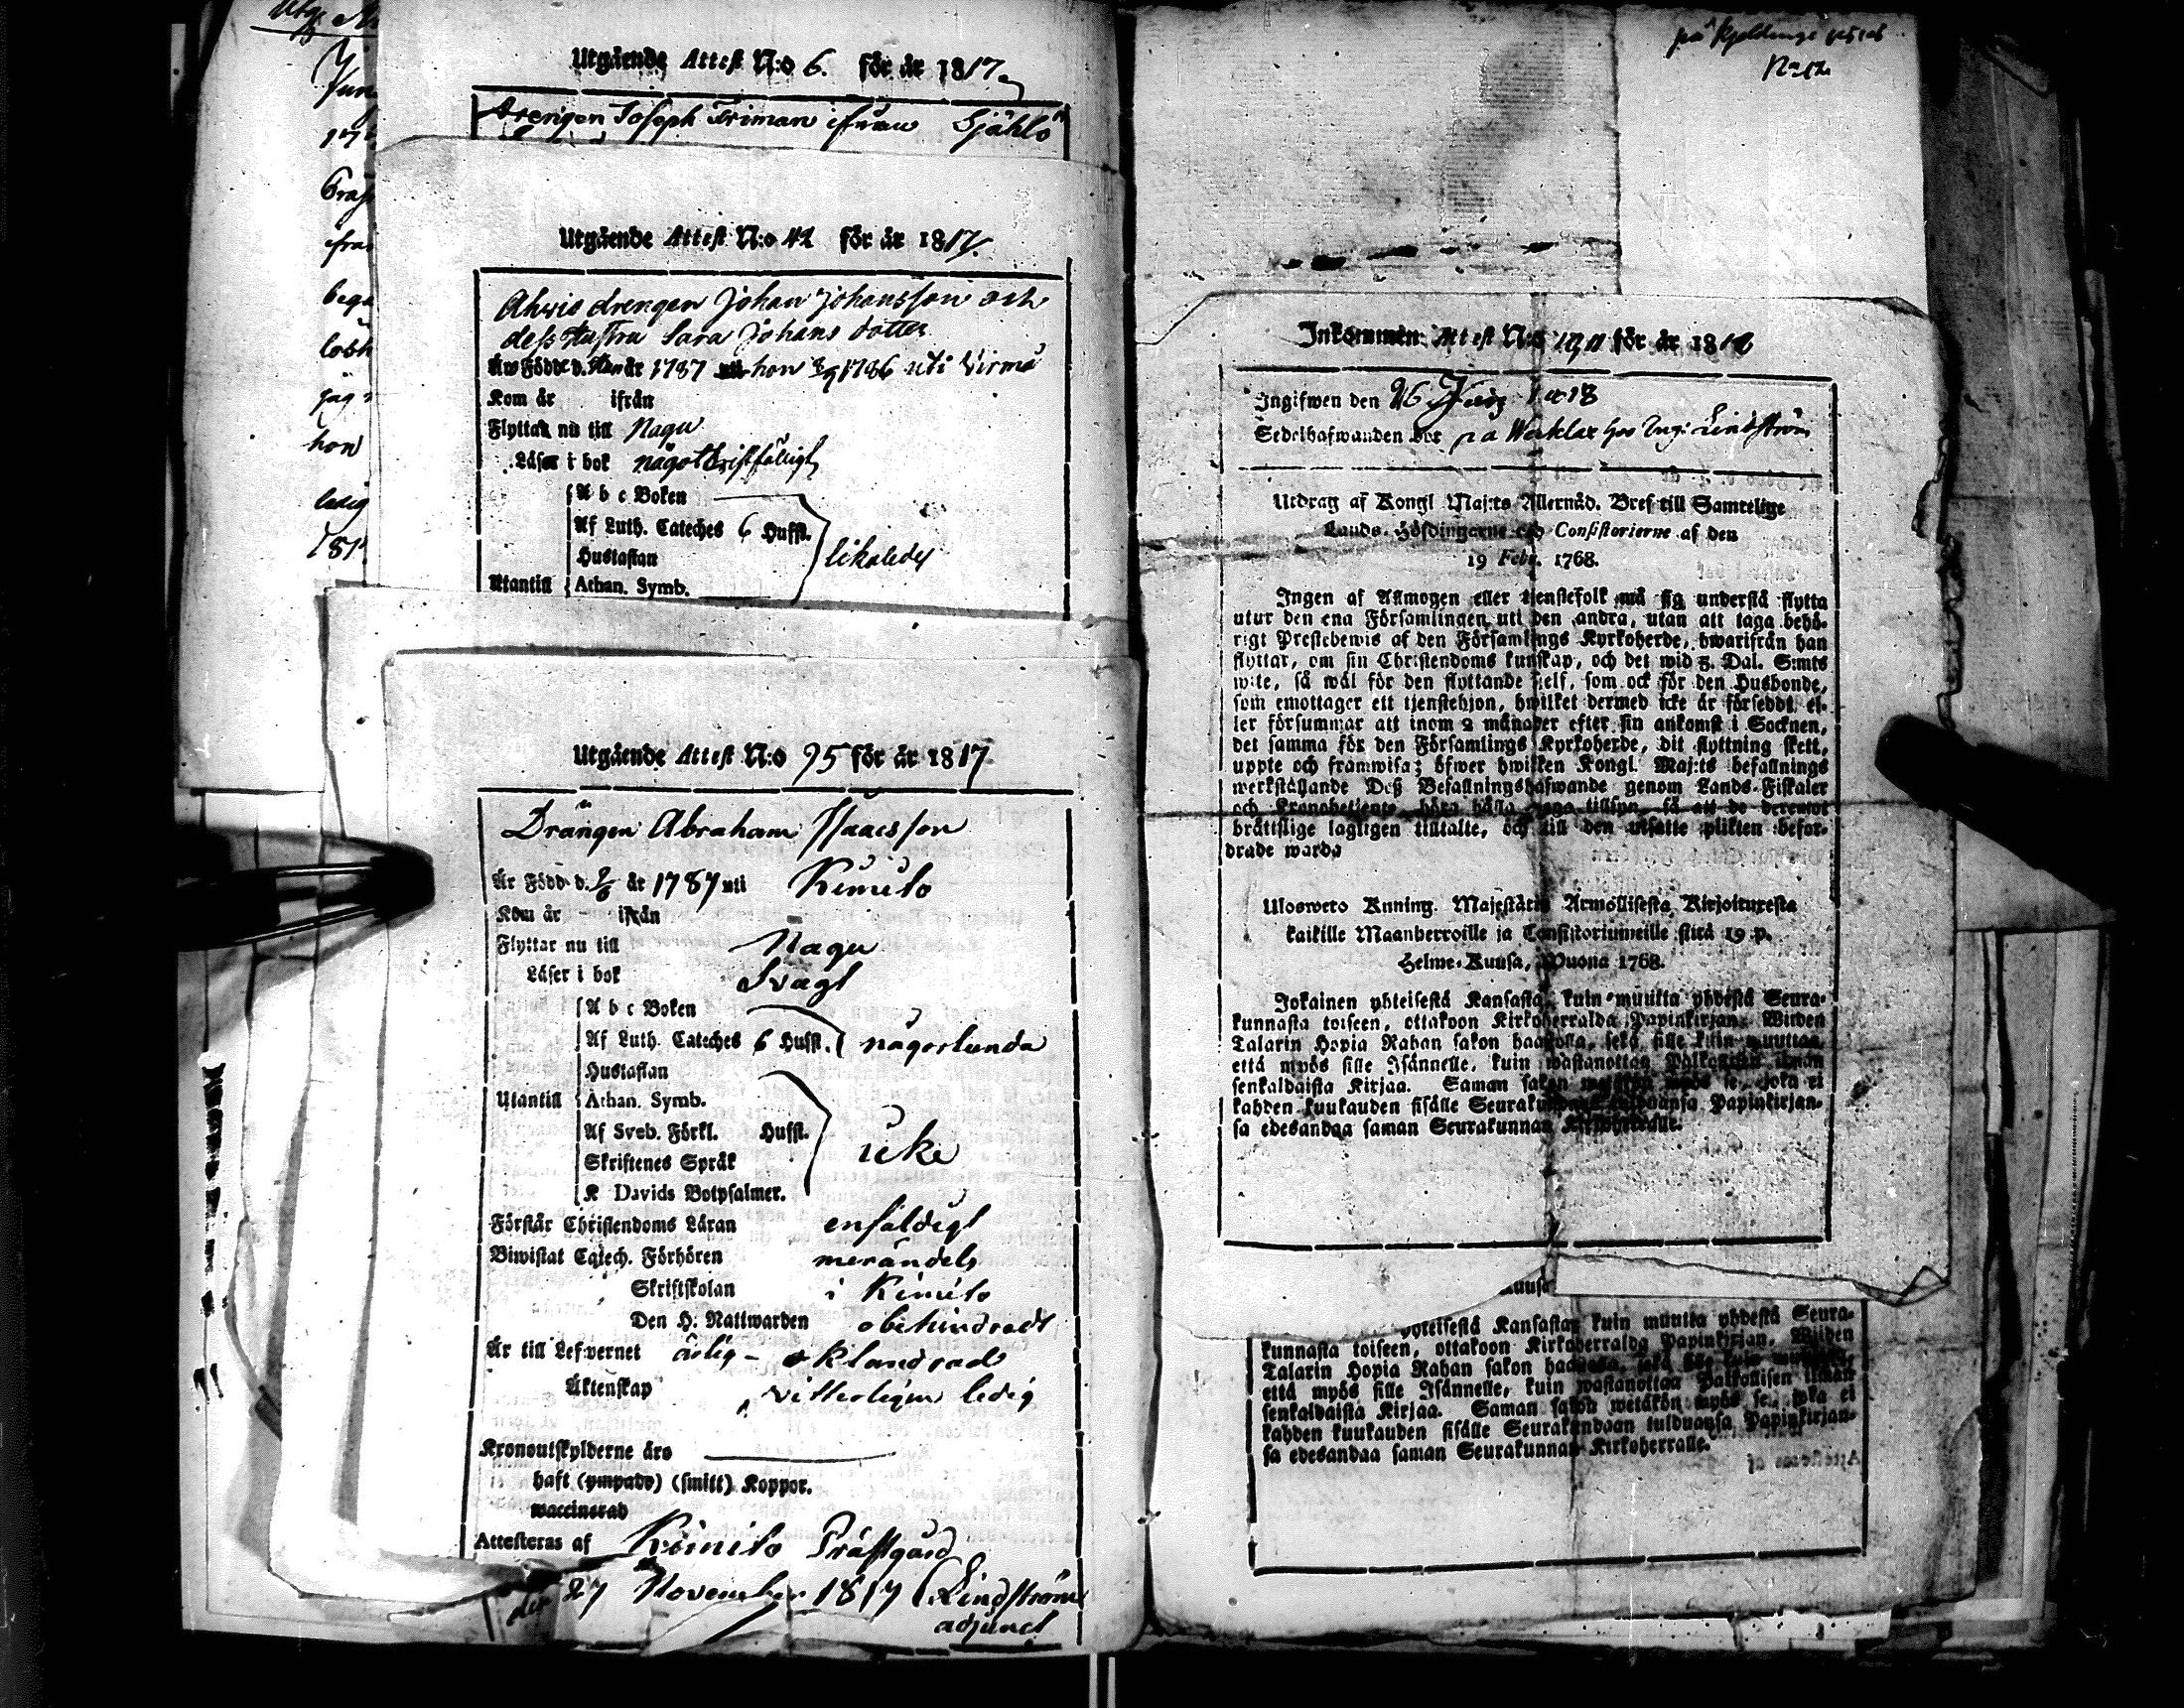 Utgående Attest N:o 6. för år 1817
Drengen Joseph Friman ifrån Sjählö
Utgående Attest N:o 42 för år 1817.
drengen Johan Johansson och
dess Hustru Sara Johans dotter
år 1787 hon 8/9 1786 uti Virmo
Kom år ifrån
Flyttar nu till Nagu
Läser i bok något bristfälligt
A b c Boken
Af Luth. Cateches 6 Huffst.
Hustaflan likaledes
Utantill Athan. Symb.
Utgående Attest N:o 95 för år 1817
Drängen Abraham Isaacsson
Är Född d. år 1787 uti Kimito
Kom år ifrån
Flyttar nu till Nagu
Läser i bok Svagt
A b c Boken
Af Luth. Cateches 6 Huffst. någorlunda
Hustaflan
Utantill Athan. Symb.
Af Sveb. Förkl. Huffst.
Skriftenes Språk icke
K Davids Botpsalmer.
Förstår Christendoms Läran enfäldigt
Biwistat Catech. Förhören merändels
Skriftskolan i Kimito
Den H. Nattwarden obehindradt
Är till Lefvernet ärlig - oklandrad
Äktenskap vitterligen ledig
Kronoutskylderne äro
haft (ympade) (smitt) Koppor.
waccinerad
Attesteras af Kimito Prästgård
den 27 November 1817 Lindström
adjunct
Inkommen Attest N:o för år 1818
Ingifwen den 26 1818
Sedelhafwanden bor på
Utdrag af Kongl Maj:ts Allernåd. Bref till Samtelige
Lands-Höfdingarne och Consistorierne af den
19 Febr. 1768.
Ingen af Allmogen eller tjenstefolk må sig understå flytta
utur den ena Församlingen uti den andra, utan att taga behö-
rigt Prestebewis af den Församlings Kyrkoherde, hwarifrån han
flyttar, om sin Christendoms kunskap, och det wid 3. Dal. S:mts
wite, så wäl för den flyttande sielf, som ock för den Husbonde,
som emottager ett tjenstehjon, hwilket dermed icke är försedt, el-
ler försummar att inom 2 månader efter sin ankomst i Socknen,
det samma för den Församlings Kyrkoherde, dit flyttning skett,
uppte och framwisa; öfwer hwilken Kongl. Maj:ts befallnings
werkställande Deß Befallningshafwande genom Lands-Fiskaler
och Kronobetjente böra hålla noga tillsyn, så att de deremot
bråttslige lagligen tilltalte, och till den utsatte plikten befor-
drade warda
Ulosweto Kuning. Majestätin Armollisesta Kirjoituxesta
kaikille Maanherroille ja Consistoriumeille siitä 19 p.
Helme-Kuusa, Wuona 1768.
Jokainen yhteisestä Kansasta, kuin muutta yhdestä Seura-
kunnasta toiseen, ottakoon Kirkoherralda Papinkirjan, Wiiden
Talarin Hopia Rahan sakon haasolla, sekä sille kuin muuttaa,
että myös sille Isännelle, kuin wastanottaa Palkollisen ilman
senkaldaista Kirjaa. Saman sakon wetäkön myös se, joka ei
kahden kuukauden sisälle Seurakundaan tulduansa Papinkirjan-
sa edesandaa saman Seurakunnan Kirkoherralle.
yhteisestä Kansasta, kuin muutta yhdestä Seura-
kunnasta toiseen, ottakoon Kirkoherralda Papinkirjan, Wiiden
Talarin Hopia Rahan sakon
että myös sille Isännelle, kuin wastanottaa Palkollisen ilman
senkaldaista Kirjaa. Saman sakon wetäkön myös se, joka ei
kahden kuukauden sisälle Seurakundaan tulduansa Papinkirjan-
sa edesandaa saman Seurakunnan Kirkoherralle.